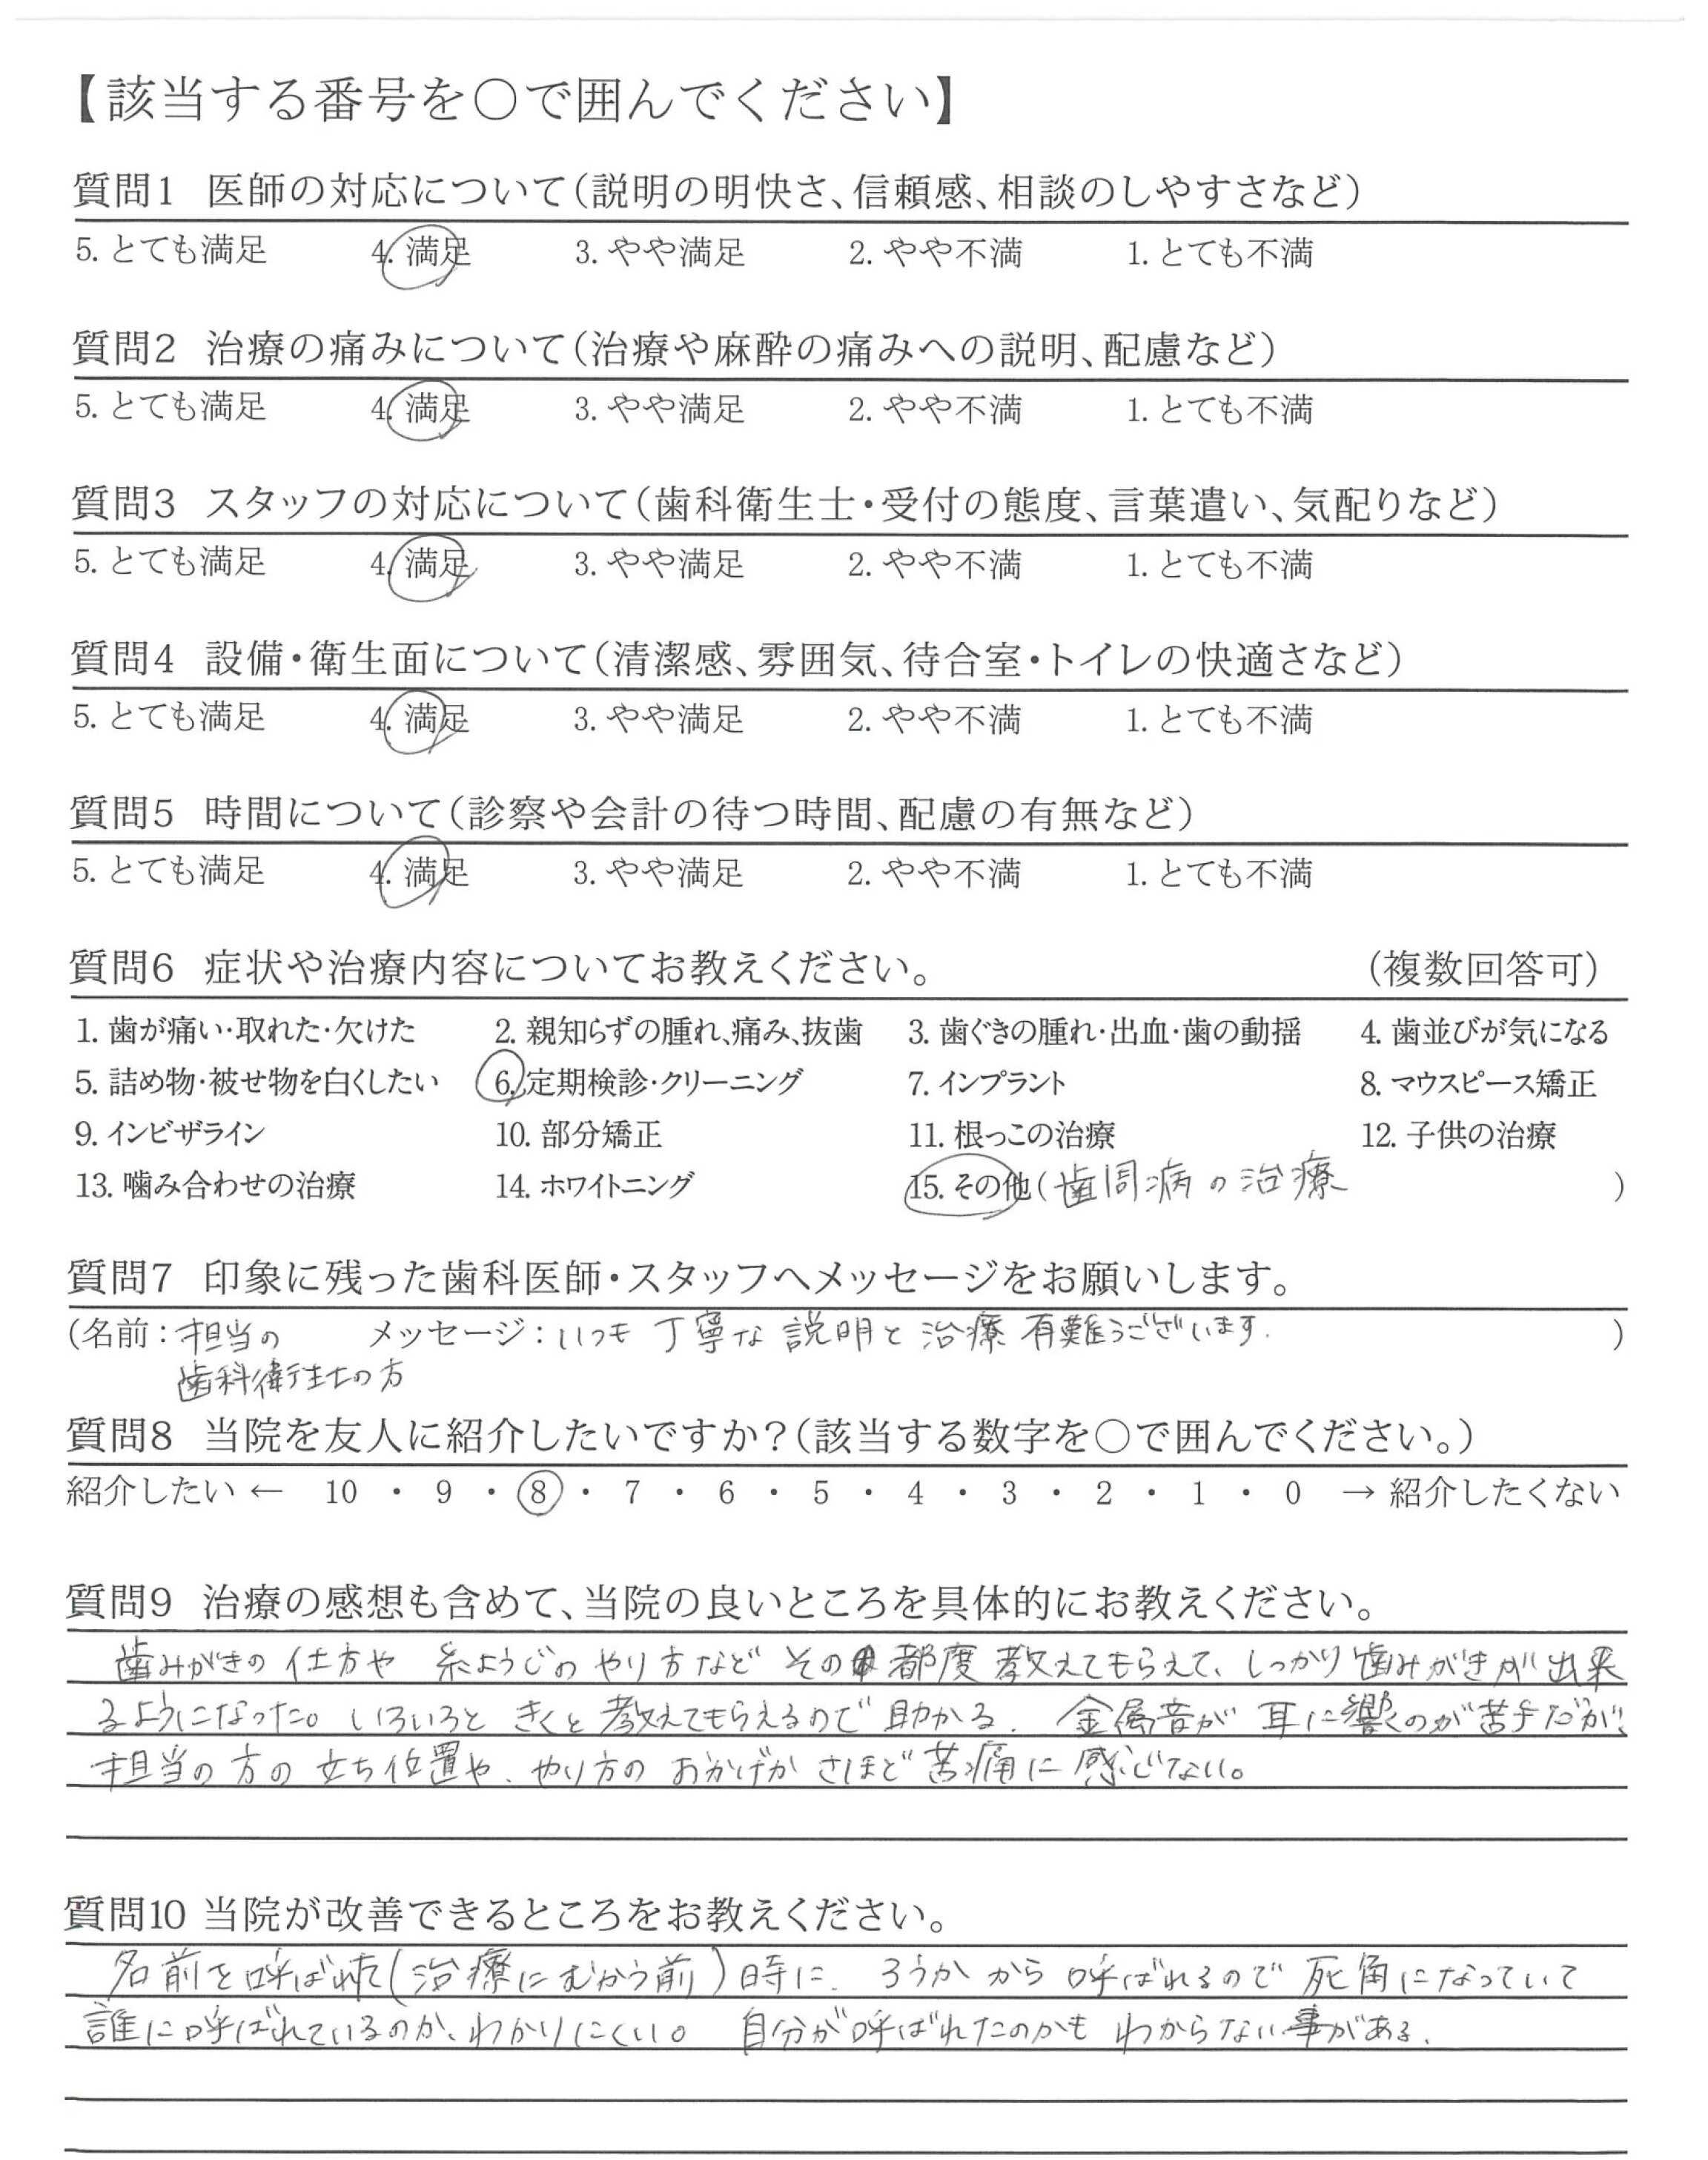 【該当する番号を〇で囲んでください】
質問1 医師の対応について(説明の明快さ、信頼感、相談のしやすさなど)
5. とても満足 4. 満足 3. やや満足 2. やや不満 1. とても不満
質問2 治療の痛みについて(治療や麻酔の痛みへの説明、配慮など)
5. とても満足 4. 満足 3. やや満足 2. やや不満 1. とても不満
質問3 スタッフの対応について(歯科衛生士・受付の態度、言葉遣い、気配りなど)
5. とても満足 4. 満足 3. やや満足 2. やや不満 1. とても不満
質問4 設備・衛生面について(清潔感、雰囲気、待合室・トイレの快適さなど)
5. とても満足 4. 満足 3. やや満足 2. やや不満 1. とても不満
質問5 時間について(診察や会計の待つ時間、配慮の有無など)
5. とても満足 4. 満足 3. やや満足 2. やや不満 1. とても不満
質問6 症状や治療内容についてお教えください。 (複数回答可)
1. 歯が痛い・取れた・欠けた 2. 親知らずの腫れ、痛み、抜歯 3. 歯ぐきの腫れ・出血・歯の動揺 4. 歯並びが気になる
5. 詰め物・被せ物を白くしたい 6. 定期検診・クリーニング 7. インプラント 8. マウスピース矯正
9. インビザライン 10. 部分矯正 11. 根っこの治療 12. 子供の治療
13. 噛み合わせの治療 14. ホワイトニング 15. その他(歯周病の治療 )
質問7 印象に残った歯科医師・スタッフへメッセージをお願いします。
(名前:担当の メッセージ:いつも丁寧な説明と治療有難うございます. )
歯科衛生士の方
質問8 当院を友人に紹介したいですか?(該当する数字を〇で囲んでください。)
紹介したい ← 10 ・ 9 ・ 8 ・ 7 ・ 6 ・ 5 ・ 4 ・ 3 ・ 2 ・ 1 ・ 0 → 紹介したくない
質問9 治療の感想も含めて、当院の良いところを具体的にお教えください。
歯みがきの仕方や 糸ようじのやり方など その都度教えてもらえて、しっかり歯みがきが出来
るようになった。いろいろと きくと教えてもらえるので助かる. 金属音が耳に響くのが苦手だが、
担当の方の立ち位置や、やり方のおかげか さほど苦痛に感じない。
質問10 当院が改善できるところをお教えください。
名前を呼ばれた(治療にむかう前)時に、ろうかから呼ばれるので死角になっていて
誰に呼ばれているのか、わかりにくい。 自分が呼ばれたのかもわからない事がある.